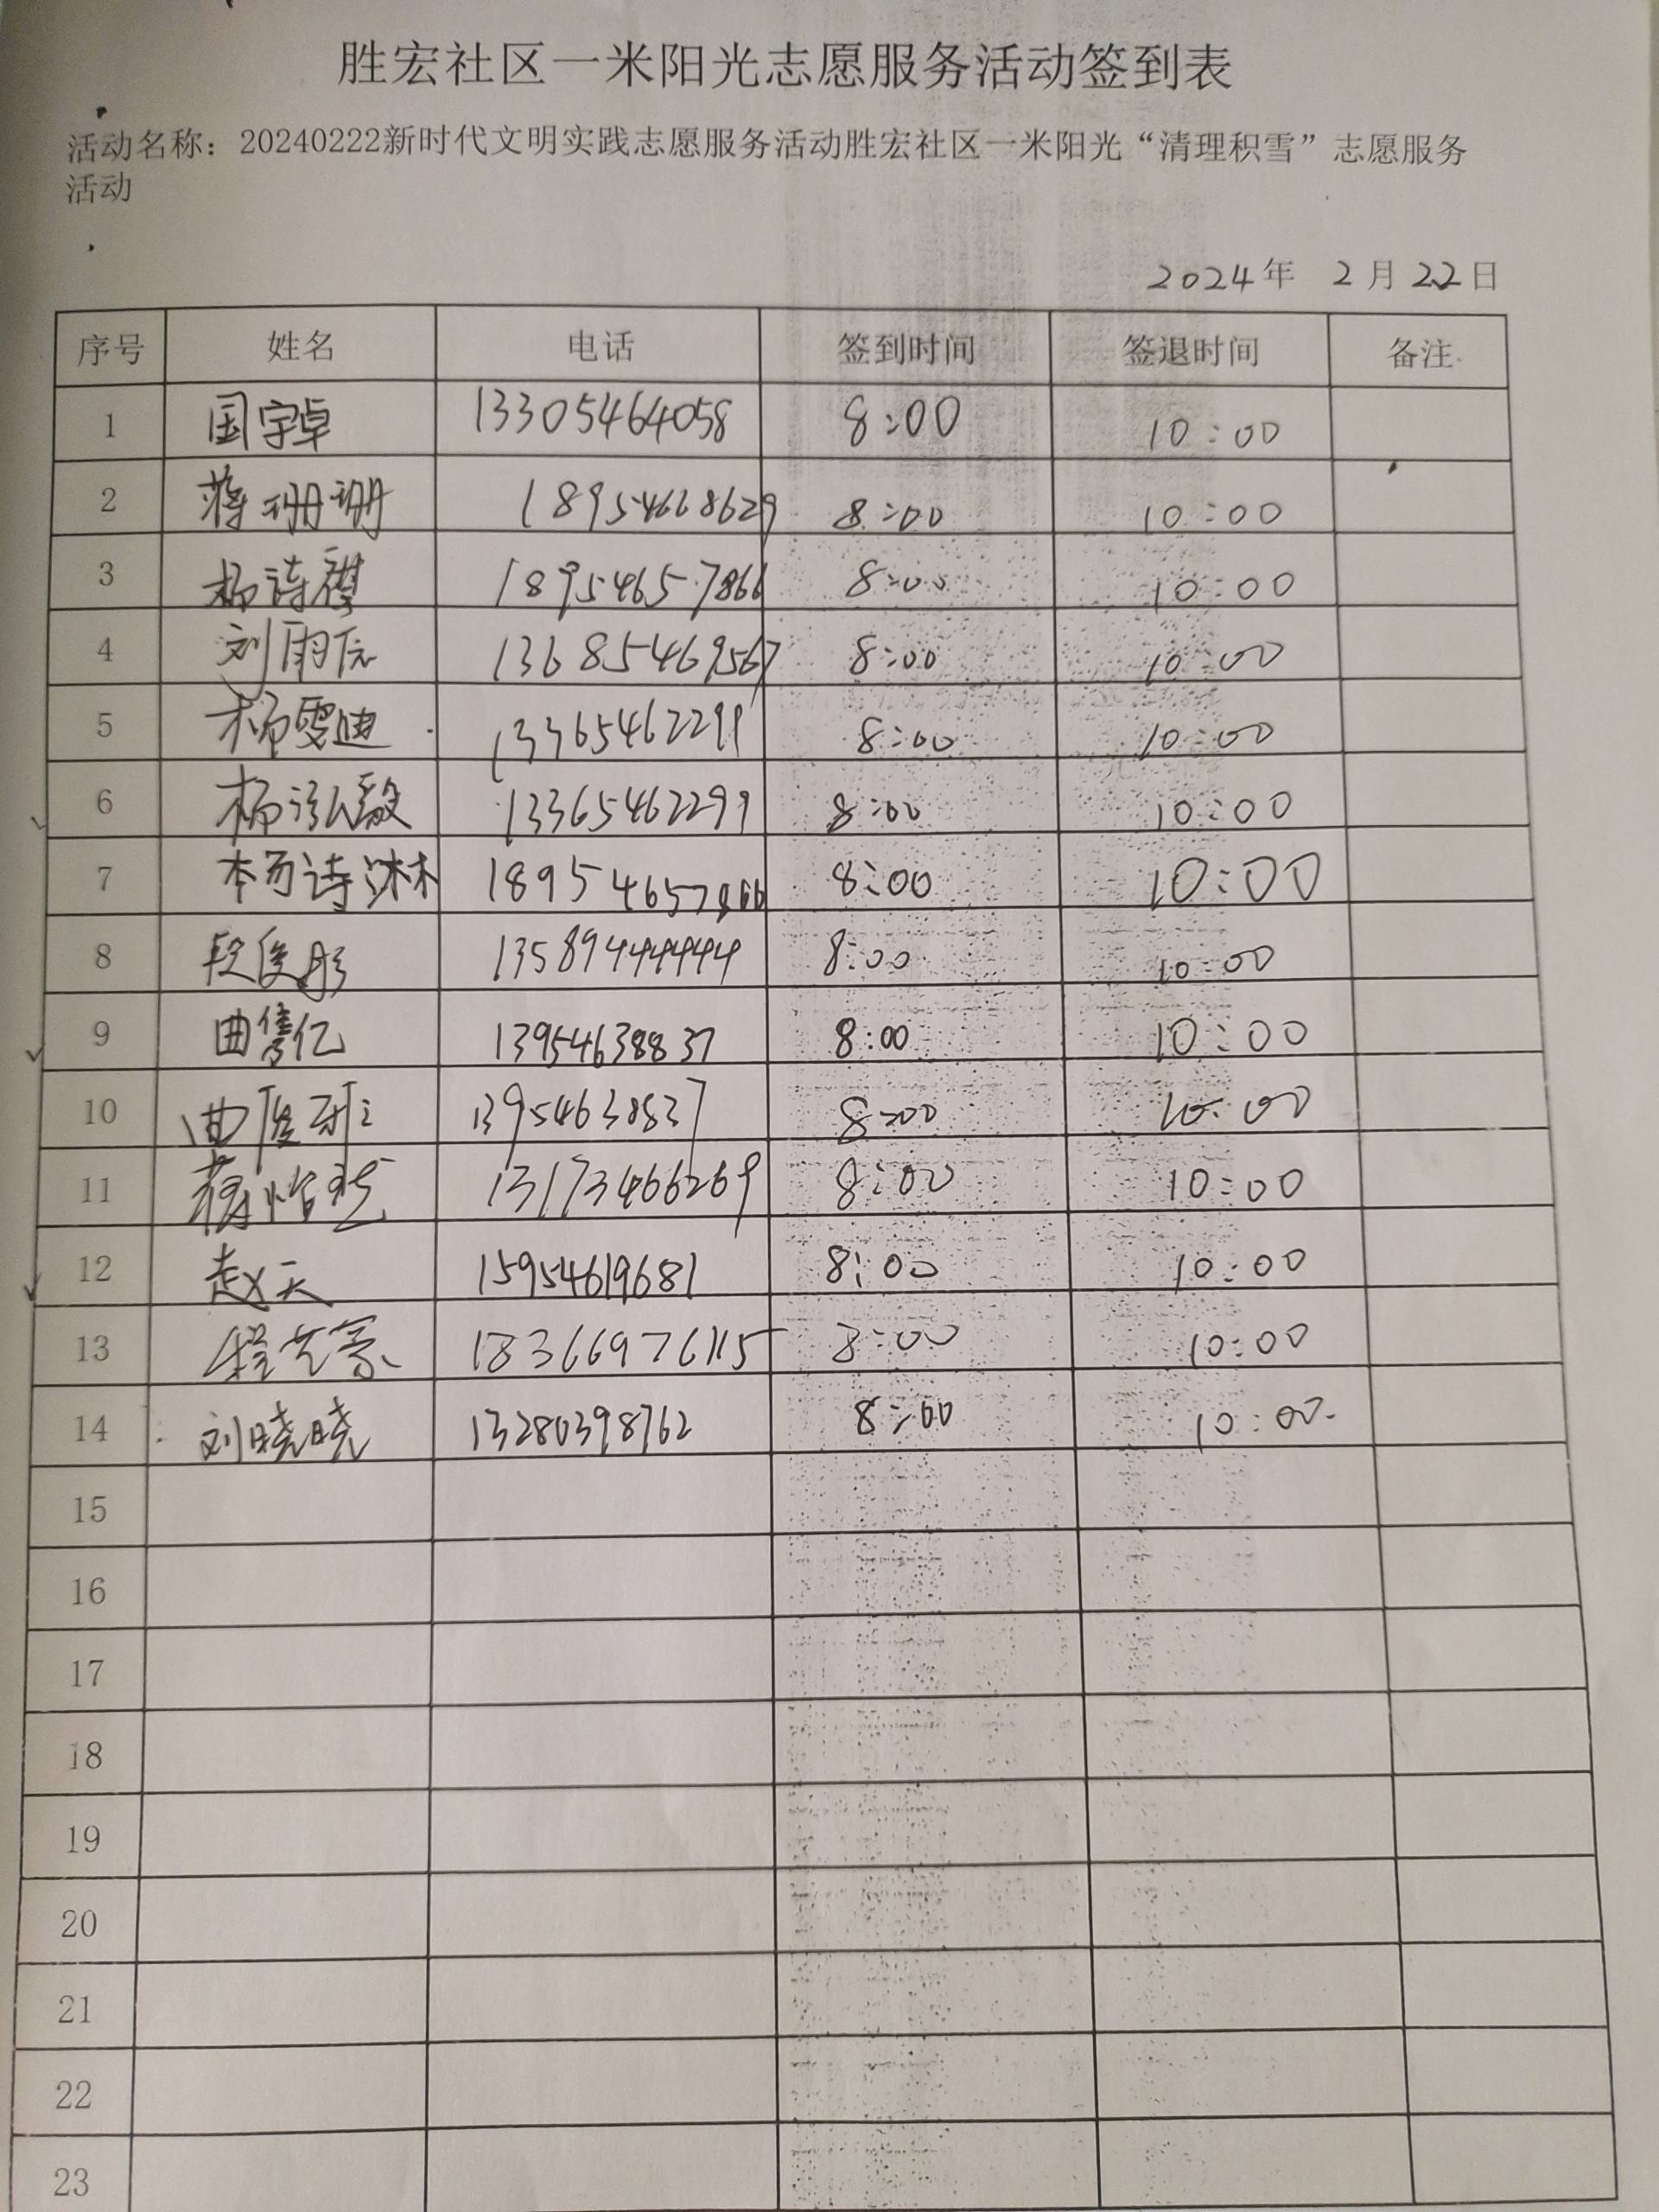 胜宏社区一米阳光志愿服务活动签到表
活动名称：20240222新时代文明实践志愿服务活动胜宏社区一米阳光“清理积雪”志愿服务
活动
2024年 2月22日
序号 姓名 电话 签到时间 签退时间 备注
1 国宇卓 13305464058 8:00 10:00
2 蒋珊珊 18954668629 8:00 10:00
3 杨诗祺 18954657866 8:00 10:00
4 刘雨辰 13685469567 8:00 10:00
5 杨雯迪 13365462299 8:00 10:00
6 杨泓毅 13365462299 8:00 10:00
7 杨诗淋 18954657866 8:00 10:00
8 段俊彤 13589444444 8:00 10:00
9 曲隽亿 13954638837 8:00 10:00
10 曲 13954638837 8:00 10:00
11 蒋怡 13173466269 8:00 10:00
12 赵天 15954619681 8:00 10:00
13 程 18366976115 8:00 10:00
14 刘晓晓 13280398762 8:00 10:00
15
16
17
18
19
20
21
22
23